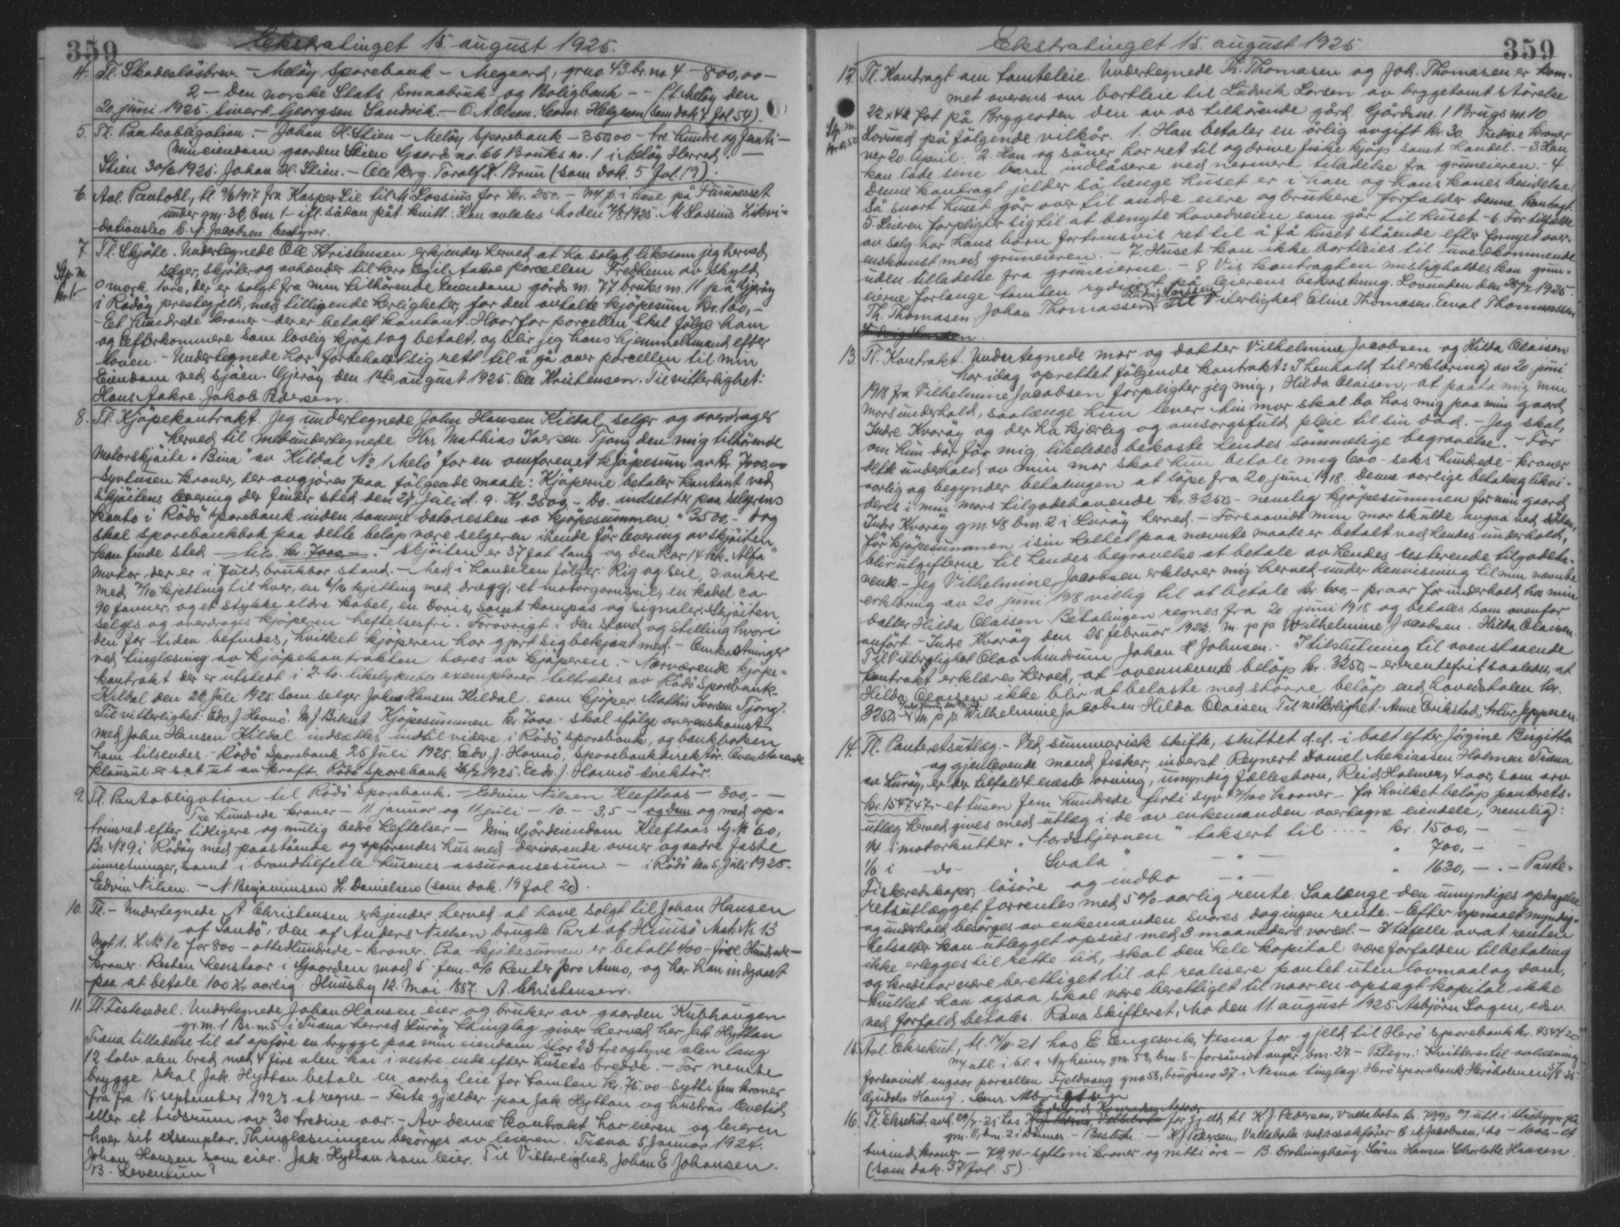 359
Ekstratinget 15. august 1925.
4. Tl. Skadesløsbrev – Meløy Sparebank – Megaard, gr.no. 43 br.no. 4 – 800,00 –
2 – Den norske Stats Smaabruk og Boligbank – – den
20 juni 1925. Sivert Georgsen Sandvik. – O. A. Olsen. (Som dok 7 fol 54).
5. Tl. Panteobligation. – Johan H. Stien – Meløy Sparebank – 350,00 – tre hundre og femti –
min eiendom gaarden Stien Gaards no. 66 Bruks no. 1 i Meløy Herred. –
Stien 30/6 1925. Johan H. Stien. – Ole Berg. Torolf K. Bruun (som dok. 5 fol. 19).
6. Avl. Pantobl., tl. 1917 fra Kasper Lie til M. Lossius for kr. 250. – m/ p. i huse på
under gn. 34, bnr. 1 – ifl. sådan påt. kvitt. Kan avleses Mo den 1925. M. Lossius Likvi-
dationsbo C. A. Jacobsen bestyrer.
7. Tl. Skjøte. Undertegnede Ole Kristensen erkjender herved at ha solgt likesom jeg herved
Stp. m.
kr. 1.–
selger, skjøter og avhender til herr Egil Aakre porcellen Fredheim av skyld
0 mark øre, der er solgt fra min tilhørende Eiendom gårds nr. 77 bruks nr. 11 på Gjerøy
i Rødøy prestegjeld, med tilliggende herligheter, for den avtalte kjøpesum Kr. 100,–
– Et hundrede kroner – der er betalt kontant. Hvorfor porcellen skal følge ham
og Efterkommere som lovlig kjøpt og betalt, og blir jeg hans hjemmelsmand efter
loven. – Undertegnede har forbeholdt sig rett til å gå over porcellen til min
Eiendom ved sjøen. Gjerøy den 12te august 1925. Ole Kristensen. Til vitterlighet:
Hans Aakre. Jakob Pedersen.
8. Tl. Kjøpekontrakt. Jeg undertegnede John Hansen Kildal selger og overdrager
herved til medundertegnede Hrr. Mathias Iversen Tjong den mig tilhørende
Motorskøite "Bina" av Kildal No 1 Melø for en omforenet kjøpesum av kr. 7000,00
– Syvtusen kroner, der avgjøres paa følgende maate: Kjøperne betaler kontant ved
skjøitens levering der finder sted den 27 juli d. a. Kr. 3500,– Do. indsettes paa selgerens
konto i Rødø Sparebank inden samme dato resten av kjøpesummen " 3500,– dog
skal sparebankbok paa dette beløp være selgeren ihende før levering av skjøiten
kan finde sted – Tils. Kr. 7000,–. – Skjøiten er 37 fot lang og den har 14 hk. "Alfa"
motor der er i fuld brukbar stand. – Med i handelen følger: Rig og seil, 2 ankre
med 7/16 kjetting til hver, en 6/16 kjetting med dragg, et motorgarnspil, en kabel ca
90 favner, og et stykke eldre kabel, en doris, samt kompas og signaler. Skjøiten
selges og overdrages kjøperen heftelsesfri. Forøvrigt i den stand og stilling hvori
den for tiden befindes, hvilket kjøperen har gjort sig bekjent med. – Omkostninger
ved tinglæsning av kjøpekontrakten bæres av kjøperen. – Nærværende kjøpe-
kontrakt der er utstedt i 2 – to – likelydende exemplarer tiltrædes av Rødø Sparebank.
Kildal den 22 Juli 1925. Som selger John Hansen Kildal. Som kjøper Mathis Iversen Tjong.
Til vitterlighet: Edv. J. Havnø. M. J. Bikset. Kjøpesummen kr. 7000.– skal ifølge overenskomst
med John Hansen Kildal indsættes indtil videre i Rødø sparebank, og bankboken
ham tilsendes. – Rødø Sparebank 25 Juli 1925. Edv. J. Havnø, sparebankdirektør. Ovenstaaende
klausul er sat ut av kraft. Rødø Sparebank 26/7 1925. Edv. J. Havnø direktør.
9. Tl. Pantobligation til Rødø Sparebank. – Edvin Nilsen Kleftaas – 300,– –
Tre hundrede kroner – 11 januar og 11 juli – 10.– – 3,5 – og dem og med op-
trinsret efter tidligere og mulig bedre heftelser – Min Gjårdeiendom Kleftaas G. No 60,
Br. No 9 i Rødøy med paastående og opførendes hus med derværende ovner og andre faste
innretninger, samt i brandtilfelle husenes assuransesum – i Rødø den 5. Juli 1925.
Edvin Nilsen – N. Benjaminsen L. Danielsen (som dok. 19 fol. 20).
10. Tl. – Undertegnede A. Christensen erkjender herved at have solgt til Johan Hansen
af Sandø, den af Anders Nielsen brugte Part af Huusø Mat. No. 13
Nyt 1. L. No. 1c for 800 – ottehundrede – kroner. Paa kjøbesummen er betalt 400 fire Hundrede –
kroner. Resten henstaar i Gaarden mod 5 – fem o/o Rente pro Anno, og har han indgaaet
paa at betale 100 kr. aarlig. Huusby 12. Mai 1887. A. Christensen.
11. Tl. Festesedel. Undertegnede Johan Hansen eier og bruker av gaarden Kubhaugen
gr.nr. 1 Br.nr. 5 i Træna herred Lurøy thinglag giver herved her Jak. Hyttan
Træna tilladelse til at opføre en brygge paa min eiendom. Stor 23 treogtyve alen lang
12 tolv alen bred med 4 fire alen kai i vestre ende efter husets bredde. – For nevnte
brygge skal Jak. Hyttan betale en aarlig leie for tomten kr. 75.00 sytti fem kroner
fra 15 september 1927 at regne – Feste gjelder paa Jak. Hyttan og hustrus levetid
eller et tidsrum av 30 tredive aar. – Av denne kontrakt har eieren og leieren
hver sit eksemplar. Thinglæsningen besørges av leieren. Træna 5 Januar 1924.
Johan Hansen som eier. Jak. Hyttan som leier. Til Vitterlighet Johan E. Johansen.
B. Leventun?
Ekstratinget 15. august 1925.
359
12. Tl. Kontragt om tomteleie. Undertegnede Th. Thomasen og Joh. Thomasen er kom-
met overens om bortleie til Ludvik Larsen av bryggetomt størelse
Stp. m.
22 x 42 fot på Bryggeoden den av os tilhørende gård. Gårdsnr. 1 Brugsnr. 10
Lovund på følgende vilkår. 1. Han betaler en årlig avgift kr. 30. Tredive kroner
ver 20 April. 2. Han og sönner har ret til og drive fiske kjøp samt Handel. – 3. Han
kan lade sine barn indlåsere ved nermere tiladelse fra gruneieren. – 4
Denne kontragt jelder så lenge huset er i han og hans kones besidelse.
Så snart huset går over til andre eiere og brukere forfalder denne kontragt.
5. Leieren forpligter sig til at benyte hovedveien som går til huset – 6. For tilfelle
av salg har hans børn fortrinsvis ret til å få huset stående efter fornyet over-
enskomst med gruneieren. – 7. Huset kan ikke bortleies til uvedkommende
uden tilladelse fra gruneierne. – 8. Vis kontragten misligholdes kan grun-
eierne forlange tomten rydet på leierens bekostning. Lovunden den 1925
Th. Thomasen. Johan Thomassen. Ludvig Larssen. Til Viterlighet Eline Thomasen. Enval Thomassen
13. Tl. Kontrakt. Undertegnede mor og datter Vilhelmine Jacobsen og Hilda Olaisen
har idag oprettet følgende kontrakt: I henhold til erklæring av 20 juni
1918 fra Vilhelmine Jacobsen forpligter jeg mig, Hilda Olaisen, at paata mig min
mors underhold, saalenge hun lever. Min mor skal bo hos mig paa min gaard
Indre Kvarøy og der ha kjærlig og omsorgsfuld pleie til sin død. – Jeg skal,
om hun dør før mig, likeledes bekoste hendes sømmelige begravelse. – For
dette underhold av min mor skal hun betale mig 600 – seks hundrede – kroner
aarlig og begynder betalingen at løpe fra 20 juni 1918. Denne aarlige betaling likvi-
deres i min mors tilgodehavende kr. 3250 – nemlig kjøpesummen for min gaard
Indre Kvarøy gnr. 48 bnr. 2 i Lurøy herred. – Forsaavidt min mor skulde avgaa ved døden,
før kjøpesummen i sin helhet paa nævnte maate er betalt ved hendes underhold,
blir utgifterne til hendes begravelse at betale av hendes resterende tilgodeha-
vende. – Jeg Vilhelmine Jacobsen erklærer mig herved under henvisning til min nævnte
erklæring av 20 juni 1918 villig til at betale kr. 600,– pr. aar for underhold hos min
datter Hilda Olaisen. Betalingen regnes fra 20 juni 1918 og betales som ovenfor
anført. – Indre Kvarøy den 25 februar 1925. m. p. p. Wilhelmine Jacobsen. Hilda Olaisen
Til Vitterlighet Olav Mindrum Johan H Johnsen. – I tilslutning til ovenstaaende
kontrakt erklæres herved, at ovennævnte beløp kr. 3250,– er rentefrit saaledes, at
Hilda Olaisen ikke blir at belaste med større beløp end hovedstolen kr.
3250,– m. p. p. Wilhelmine Jacobsen Hilda Olaisen Til vitterlighet: Anne Erikstad, Artur Jeppesen.
14. Tl. Panteretsutlæg. – Ved summarisk skifte, sluttet d.d. i boet efter Jørgine Birgitta
og gjenlevende mand, fisker, inderst Reynert Daniel Mekiassen Holmen Træna
av Lurøy, er der tilfaldt eneste arving, umyndig fællesbarn, Reid Holmen, 4 aar, som arv
kr. 1547,47 – et tusen fem hundrede førti syv 47/100 kroner – for hvilket beløp pantrets-
utlæg herved gives med utlæg i de av enkemanden overtagne eiendele, nemlig:
1/4 i motorkutter "Nordstjernen" taksert til – – – kr. 1500,– –
1/6 i – do – "Svala" – " – " 700,– –
Fiskeredskaper, løsøre og indbo – " – " 1630,– – Pante-
retsutlægget forrentes med 5 o/o aarlig rente. Saalænge den umyndiges opdragelse
og underhold besørges av enkemanden svares dog ingen rente. – Efter opnaaet myndig-
hetsalder kan utlegget opsies med 3 maaneders varsel. – I tilfelle av at renten
ikke erlegges til rette tid, skal den hele kapital være forfalden til betaling
og kreditor være berettiget til at realisere pantet uten lovmaal og dom,
hvilket han ogsaa skal være berettiget til naar en opsagt kapital ikke
ved forfald betales. Rana skifteret, Mo den 11 august 1925. Asbjørn Lagen, edsv
15. Avl. Eksekut., tl. 21 hos E. Engesvik, Nesna for gjeld til Herø Sparebank kr. 4544,20
m/ utl. i bl. a. Nyheim, gnr. 58, bnr. 5 – forsåvidt angår bnr. 27 – Påtegn.: Kvitteres til avlæsning
forsaavidt angaar porcellen Fjeldvang gno 58, brugsno 27 i Nesna tinglag. Herø Sparebank Herøholmen 25
16. Tl. Eksekut. avh. 29/7 – 25 hos for gjeld til K. J. Pedersen, Vallabotn kr. 79,90 m/ utl. i
gnr. 11, bnr. 2 i – Bestik. – K. J. Pedersen, Vallabotn ved sakfører C. A. Jacobsen, Mo – 1000,– et
tusind kroner – 79,90 – syttini kroner og nitti øre – B. Søren Hansen. Charlotte Hansen.
(som dok. 37 fol. 5)